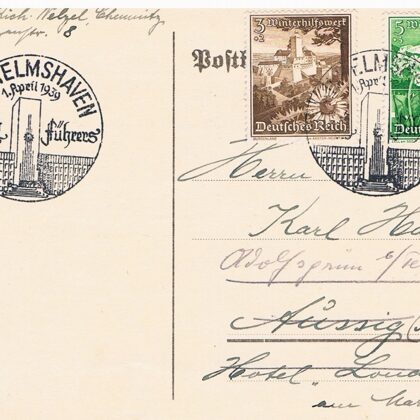 Welzel Chemnitz
8
ELMSHAVEN
1. April 1939
Führers
Post
3 Winterhilfswerk
+2
Deutsches Reich
5
Deut
ELM
1. Apri
Herrn
Karl Ha
Adolfsgrün
Aussig
Hotel "Lond
am Mar